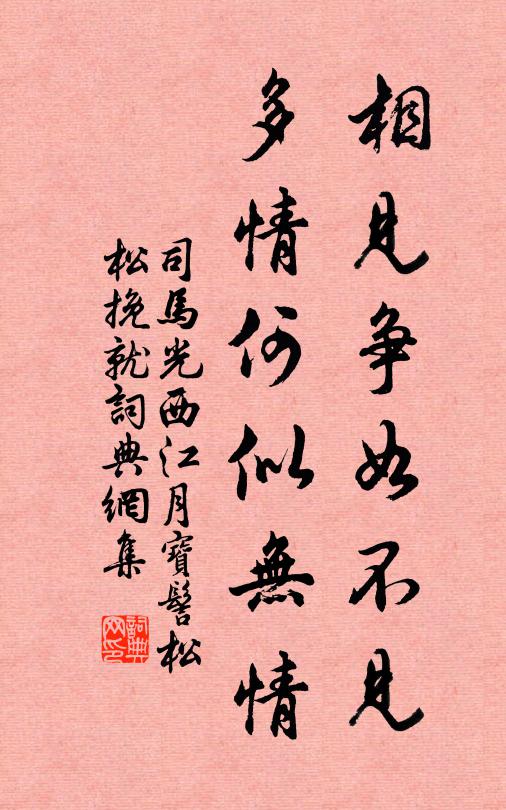 相見争如不見
多情何似無情
司馬光西江月寶髻松
松挽就詞典網集
詞典网印